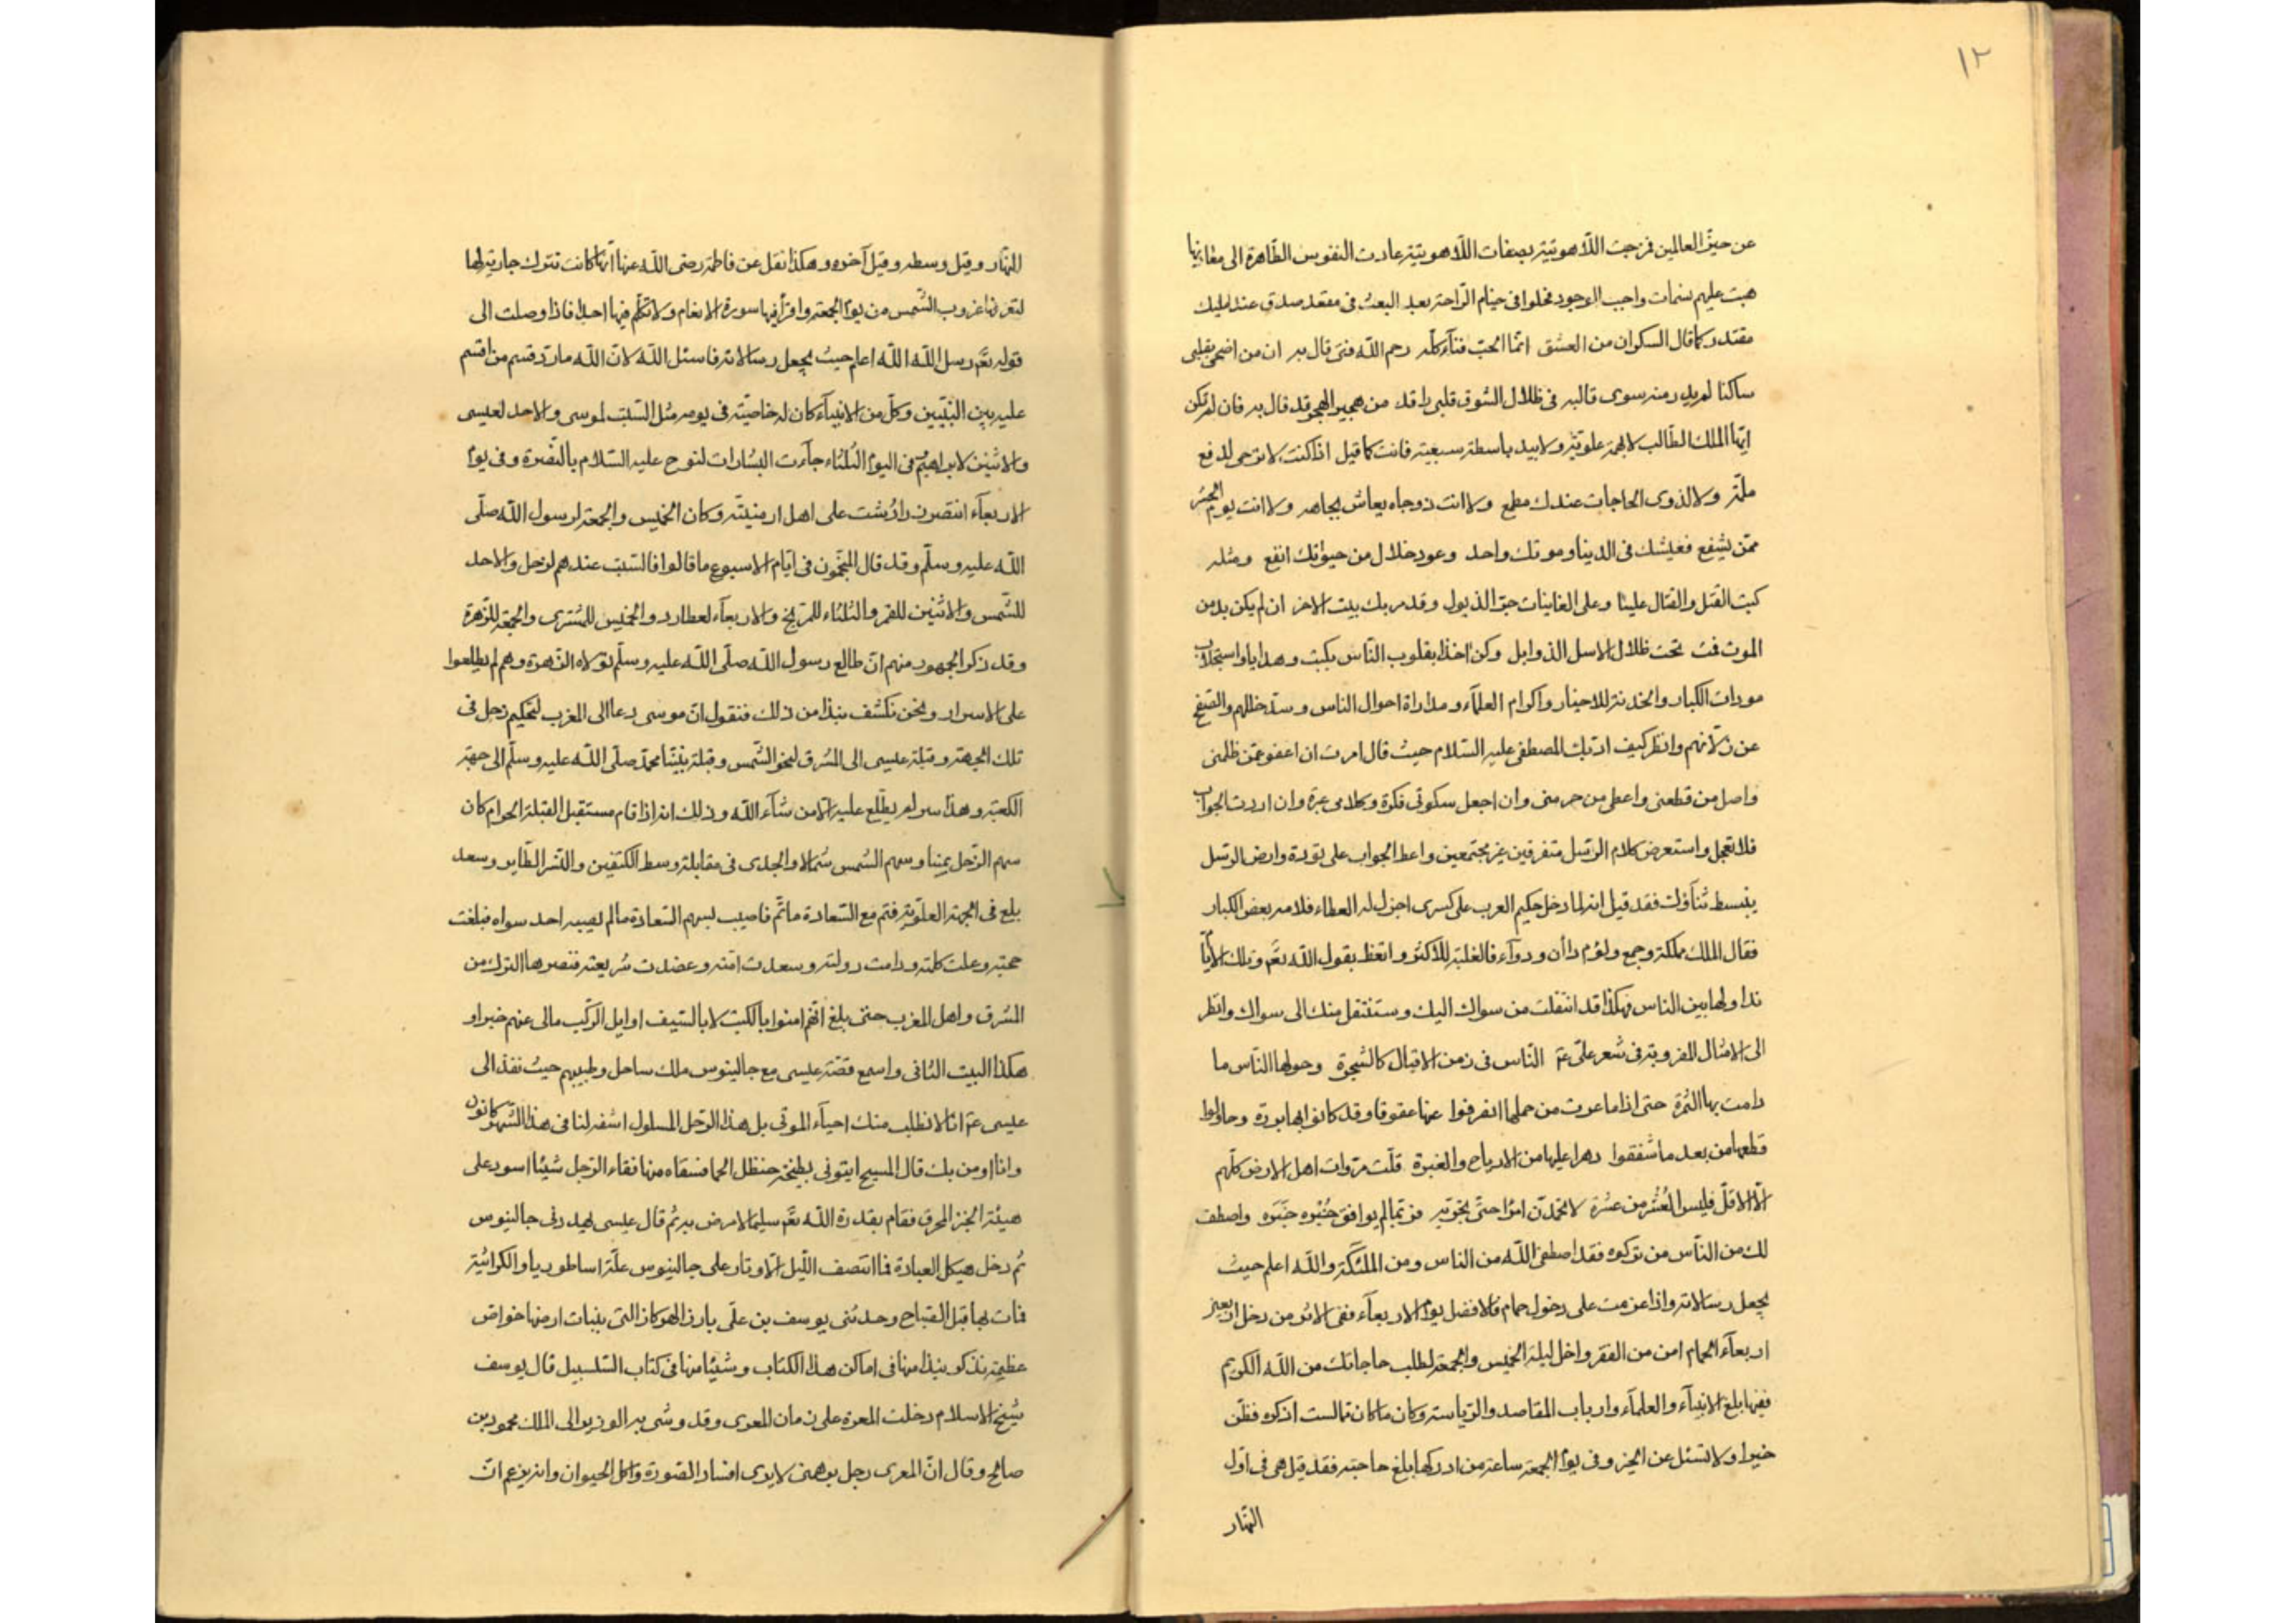 ١٢
عن حيز العالمين فزجت اللاهوتية بصفات اللاهوتية عادت النفوس الطاهرة الى مغانيها
هبت عليهم نسمات واجب الوجود فخلوا في خيام الراحة بعد البعث في مقعد صدق عند مليك
مقتدر كما قال السكران من العشق انما الحب فناء كله رحم الله فتى قال به ان من اضحى بقلبي
ساكنا لم يرد منه سوى قالبه في ظلال الشوق قلبي راقد من هجير الهجر قد قال به فان لم تكن
ايها الملك الطالب لا لهمة علوية ولا بيد باسطة سبعية فانت كما قيل اذا كنت لا ترجى لدفع
ملمة ولا لذوي الحاجات عندك مطمع ولا انت ذو جاه يعاش بجاهه ولا انت يوم الحشر
ممن يشفع فعيشك في الدنيا وموتك واحد وعود خلال من حيوتك انفع ومثله
كتب القتل والقتال علينا وعلى الغانيات جر الذيول وقد مر بك بيت الاخر ان لم يكن بد من
الموت فمت تحت ظلال الاسل الذوابل وكن اخذا بقلوب الناس بكتب وهدايا واستجلاب
مودات الكبار والخدنة للاخيار واكرام العلماء ومداراة احوال الناس وسد خللهم والصفح
عن زلاتهم وانظر كيف ادبك المصطفى عليه السلام حيث قال امرت ان اعفو عمن ظلمني
واصل من قطعني واعطي من حرمني وان اجعل سكوتي فكرة وكلامي عبرة وان اردت الجواب
فلا تعجل واستعرض كلام الرسل متفرقين غير مجتمعين واعط الجواب على تؤدة وارض الرسل
ينبسط ثناؤك فقد قيل انه لما دخل حكيم العرب على كسرى اجزل له العطاء فلامه بعض الكبار
فقال الملك مملكة وجمع ولؤم داآن ودوآء فالغلبة للاكثر واتعظ بقول الله تع وتلك الايام
نداولها بين الناس فهكذا قد انتقلت من سواك اليك وستنتقل منك الى سواك وانظر
الى الامثال المضروبة في شعر علي ع م الناس في زمن الاقبال كالشجرة وحولها الناس ما
دامت بها الثمرة حتى اذا ما عرت من حملها انصرفوا عنها عقوقا وقد كانوا بها بررة وحاولوا
قطعها من بعد ما شفقوا دهرا عليها من الارياح والغبرة قلت مروات اهل الارض كلهم
الا الاقل فليس العشر من عشرة لا تحمدن امرا حتى تجربه فربما لم يوافق خبره خبره واصطف
لك من الناس من تركوه فقد اصطفى الله من الناس ومن الملئكة والله اعلم حيث
يجعل رسالاته واذا عزمت على دخول حمام فالافضل يوم الاربعآء ففي الاثر من دخل اربعين
اربعآء الحمام امن من الفقر واخل ليلة الخميس والجمعة لطلب حاجاتك من الله الكريم
ففيها بلغ الانبيآء والعلمآء وارباب المقاصد والرياسة وكان ما كان مما لست اذكره فظن
خيرا ولا تسئل عن الخبر وفي يوم الجمعة ساعة من ادركها بلغ حاجته فقد قيل هي في اول
النهار
النهار وقيل وسطه وقيل آخره وهكذا نقل عن فاطمة رضى الله عنها انها كانت تترك جارية لها
لتعرفها غروب الشمس من يوم الجمعة واقرأ فيها سورة الانعام ولا تكلم فيها احدا فاذا وصلت الى
قوله تع رسل الله الله اعلم حيث يجعل رسالاته فاسئل الله لان الله ما رد قسم من اقسم
عليه بين النبيين وكل من الانبيآء كان له خاصية في يومه مثل السبت لموسى والاحد لعيسى
والاثنين لابراهيم وفي اليوم الثلثاء جآءت البشارات لنوح عليه السلام بالنصرة وفي يوم
الاربعآء انتصر زرادشت على اهل ارمنيته وكان الخميس والجمعة لرسول الله صلى
الله عليه وسلم وقد قال المنجمون في ايام الاسبوع ما قالوا فالسبت عندهم لزحل والاحد
للشمس والاثنين للقمر والثلثاء للمريخ والاربعآء لعطارد والخميس للمشترى والجمعة للزهرة
وقد ذكر الجمهور منهم ان طالع رسول الله صلى الله عليه وسلم تولاه الزهرة وهم لم يطلعوا
على الاسرار ونحن نكشف نبذا من ذلك فنقول ان موسى دعا الى المغرب لتحكيم زحل في
تلك الجهة وقبلة عيسى الى المشرق لنحو الشمس وقبلة نبينا محمد صلى الله عليه وسلم الى جهة
الكعبة وهذا سر لم يطلع عليه الا من شآء الله وذلك انه اذا قام مستقبل القبلة الحرام كان
سهم الزحل يمينا وسهم الشمس شمالا والجدى في مقابلة وسط الكتفين والنسر الطاير وسعد
بلع في الجهة العلوية فتم مع السعادة ما تم فاصيب بسهم السعادة ما لم يصبه احد سواه فبلغت
حجته وعلت كلمته ودامت دولته وسعدت امته وعضدت شريعته فنصرها الترك من
المشرق واهل المغرب حتى بلغ انهم امنوا بالكتب لا بالسيف اوايل الركب مالى عنهم خبر او
هكذا البيت الثاني واسمع قصة عيسى مع جالينوس ملك ساحل وطبيبهم حيث نفذ الى
عيسى ع م انا لا نطلب منك احيآء الموتى بل هذا الرجل المسلول اشفه لنا في هذا الشهر كانون
وانا اومن بك قال المسيح ايتونى بطيخة حنظل الحما فسقاه منها فقاء الرجل شيئا اسود على
هيئة الخبز المحرق فقام بقدرة الله تع سليما لا مرض به ثم قال عيسى يهددني جالينوس
ثم دخل هيكل العبادة فما انتصف الليل الا وثار على جالينوس علة اساطوريا والكرائية
فمات بها قبل الصباح وحدثني يوسف بن علي بارز الهوكاز التي بنبات ارضها خواص
عظيمة نذكر نبذا منها في اماكن هذا الكتاب وشيئا منها في كتاب السلسبيل قال يوسف
شيخ الاسلام دخلت المعرة على زمان المعرى وقد وشى به الوزير الى الملك محمود بن
صالح وقال ان المعرى رجل برهمى لا يرى افساد الصورة واكل الحيوان وانه يزعم ان